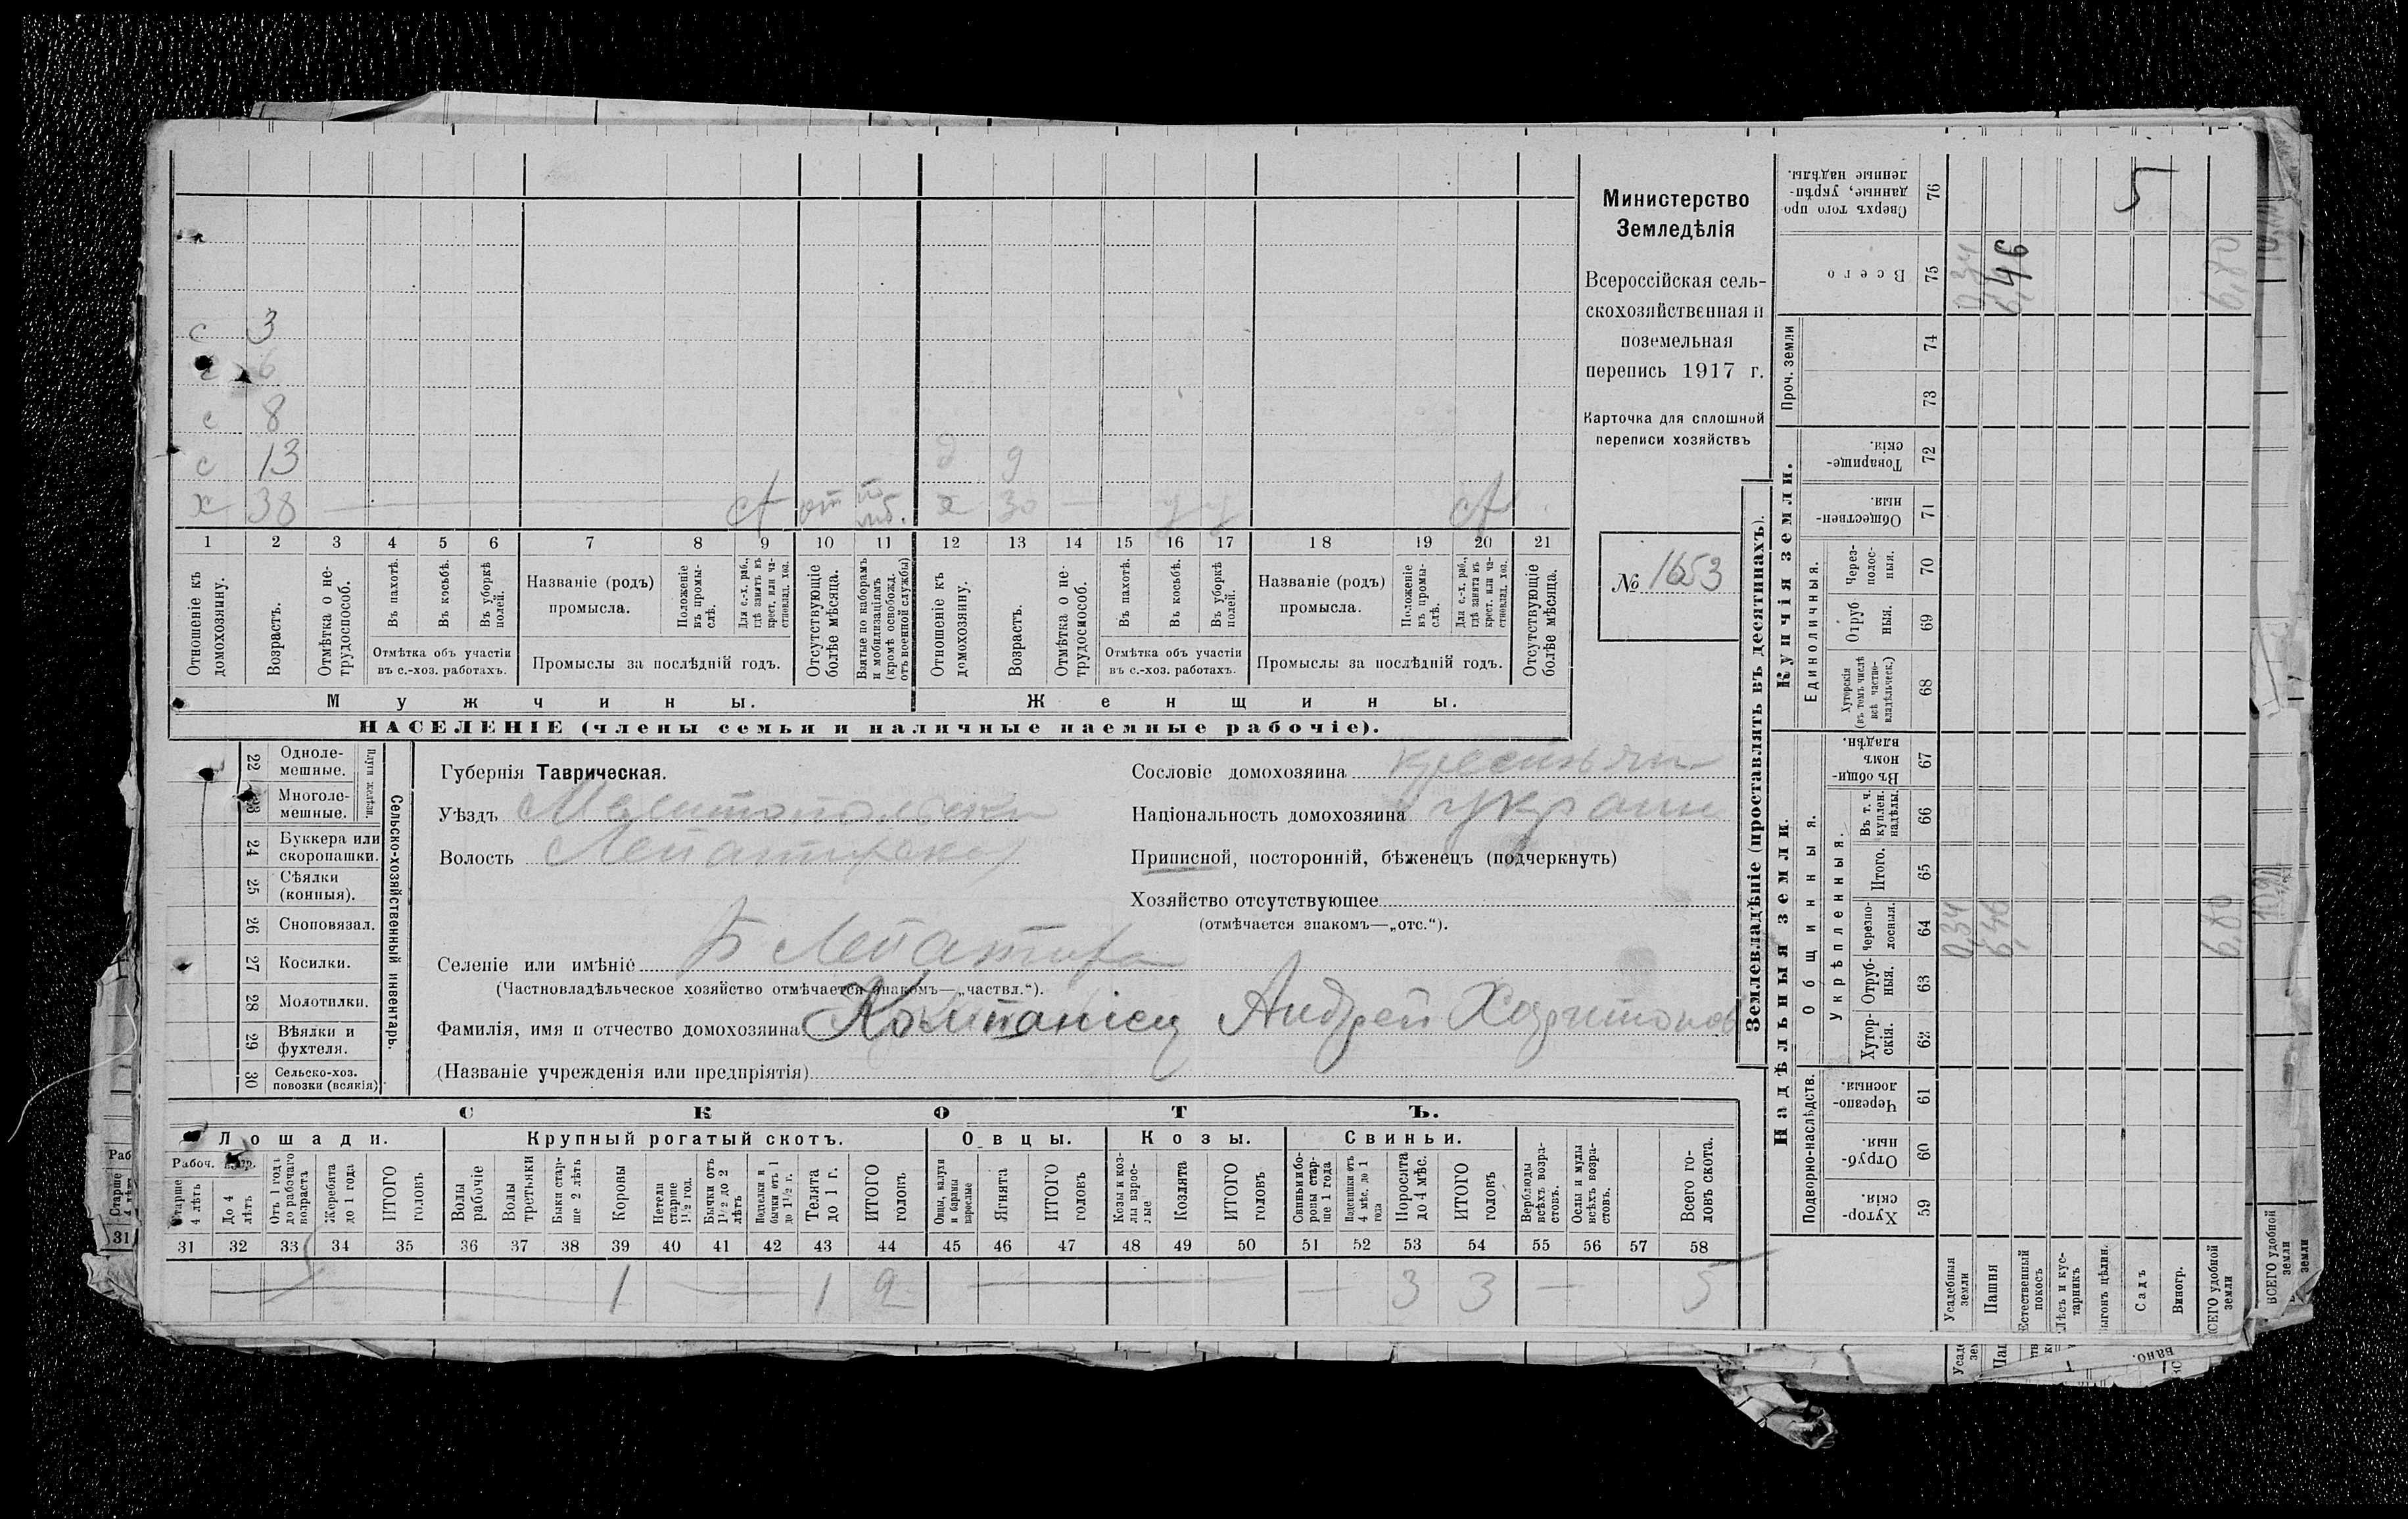 Министерство
Земледѣлія
Всероссійская сель-
скохозяйственная и
поземельная
перепись 1917 г.
Карточка для сплошной
переписи хозяйствъ
№ 1653
с 3
с 6
с 8
с 13 д 9
х 38 от по моб. х 30 у у
1 2 3 4 5 6 7 8 9 10 11 12 13 14 15 16 17 18 19 20 21
Отношеніе къ домохозяину.
Возрастъ.
Отмѣтка о не-трудоспособ.
Въ пахотѣ.
Въ косьбѣ.
Въ уборкѣ полей.
Отмѣтка объ участіи
въ с.-хоз. работахъ.
Названіе (родъ)
промысла.
Положеніе въ промы-слѣ.
Для с.-х. раб., гдѣ занятъ въ крест. или ча-стновлад. хоз.
Промыслы за послѣдній годъ.
Отсутствующіе болѣе мѣсяца.
Взятые по наборамъ и мобилизаціямъ (кромѣ освобожд. отъ военной службы)
Отношеніе къ домохозяину.
Возрастъ.
Отмѣтка о не-трудоспособ.
Въ пахотѣ.
Въ косьбѣ.
Въ уборкѣ полей.
Отмѣтка объ участіи
въ с.-хоз. работахъ.
Названіе (родъ)
промысла.
Положеніе въ промы-слѣ.
Для с.-х. раб., гдѣ занята въ крест. или ча-стновлад. хоз.
Промыслы за послѣдній годъ.
Отсутствующіе болѣе мѣсяца.
Мужчины. Женщины.
НАСЕЛЕНІЕ (члены семьи и наличные наемные рабочіе).
Сельско-хозяйственный инвентарь.
Плуги желѣзн.
22 Одноле-мешные.
23 Многоле-мешные.
24 Буккера или скоропашки.
25 Сѣялки (конныя).
26 Сноповязал.
27 Косилки.
28 Молотилки.
29 Вѣялки и фухтеля.
30 Сельско-хоз. повозки (всякія)
Губернія Таврическая.
Уѣздъ Мелитопольски
Волость
Сословіе домохозяина крестьян
Національность домохозяина украин
Приписной, посторонній, бѣженецъ (подчеркнуть)
Хозяйство отсутствующее
(отмѣчается знакомъ—„отс.“).
Селеніе или имѣніе Б Лепатиха
(Частновладѣльческое хозяйство отмѣчается знакомъ—„частвл.“).
Фамилія, имя и отчество домохозяина Компаніец Андрей Харитонов
(Названіе учрежденія или предпріятія)
СКОТЪ.
Лошади. Крупный рогатый скотъ. Овцы. Козы. Свиньи.
Рабоч. возр.
Старше 4 лѣтъ
До 4 лѣтъ
Отъ 1 года до рабочаго возраста
Жеребята до 1 года
ИТОГО головъ
Волы рабочіе
Волы третьяки
Быки стар-ше 2 лѣтъ
Коровы
Нетели старше 1½ год.
Бычки отъ 1½ до 2 лѣтъ
Подтелки и бычки отъ 1 до 1½ г.
Телята до 1 г.
ИТОГО головъ
Овцы, валухи и бараны взрослые
Ягнята
ИТОГО головъ
Козы и коз-лы взрос-лые
Козлята
ИТОГО головъ
Свиньи и бо-ровы стар-ше 1 года
Подсвинки отъ 4 мѣс. до 1 года
Поросята до 4 мѣс.
ИТОГО головъ
Верблюды всѣхъ возра-стовъ.
Ослы и мулы всѣхъ возра-стовъ.
Всего го-ловъ скота.
31 32 33 34 35 36 37 38 39 40 41 42 43 44 45 46 47 48 49 50 51 52 53 54 55 56 57 58
1 — 1 2 — — 3 3 — 5
Землевладѣніе (проставлять въ десятинахъ).
Надѣльныя земли. Купчія земли. Проч. земли
Подворно-наслѣдств.
Общинныя.
Укрѣпленныя.
Единоличныя.
Хутор-скія. 59
Отруб-ныя. 60
Черезпо-лосныя. 61
Хутор-скія. 62
Отруб-ныя. 63
Черезпо-лосныя. 64
Итого. 65
Въ т. ч. куплен. надѣлы. 66
Въ общи-номъ владѣн. 67
Хуторскія (въ томъ числѣ всѣ частно-владѣльческ.) 68
Отруб ныя. 69
Через-полос-ныя. 70
Обществен-ныя. 71
Товарище-скія. 72
73
74
Всего 75
Сверхъ того про данные, укрѣп-ленные надѣлы. 76
Усадебныя земли 0,34 0,34
Пашня 6,46 6,46
Естественный покосъ
Лѣсъ и кус-тарникъ
Выгонъ цѣлин.
Садъ
Виногр.
ВСЕГО удобной земли 6,80 6,80
5
ВСЕГО удобной земли